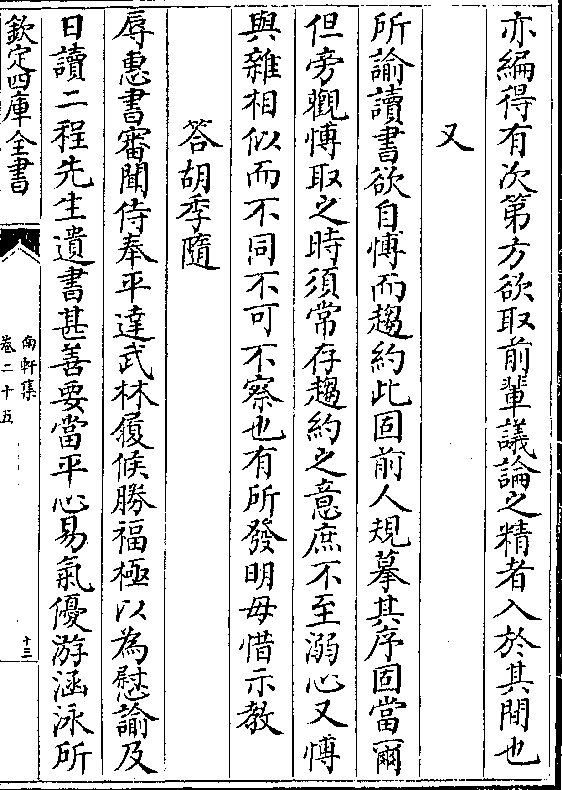 亦編得有次第方欲取前輩議論之精者入於其間也
又
所諭讀書欲自博而趨約此固前人規摹其序固當爾
但旁觀博取之時須常存趨約之意庶不至溺心又博
與雜相似而不同不可不察也有所發明毋惜示教
答胡季隨
辱惠書審聞侍奉平達武林履候勝福極以為慰諭及
日讀二程先生遺書甚善要當平心易氣優游涵泳所
欽定四庫全書
南軒集
卷二十五
十三